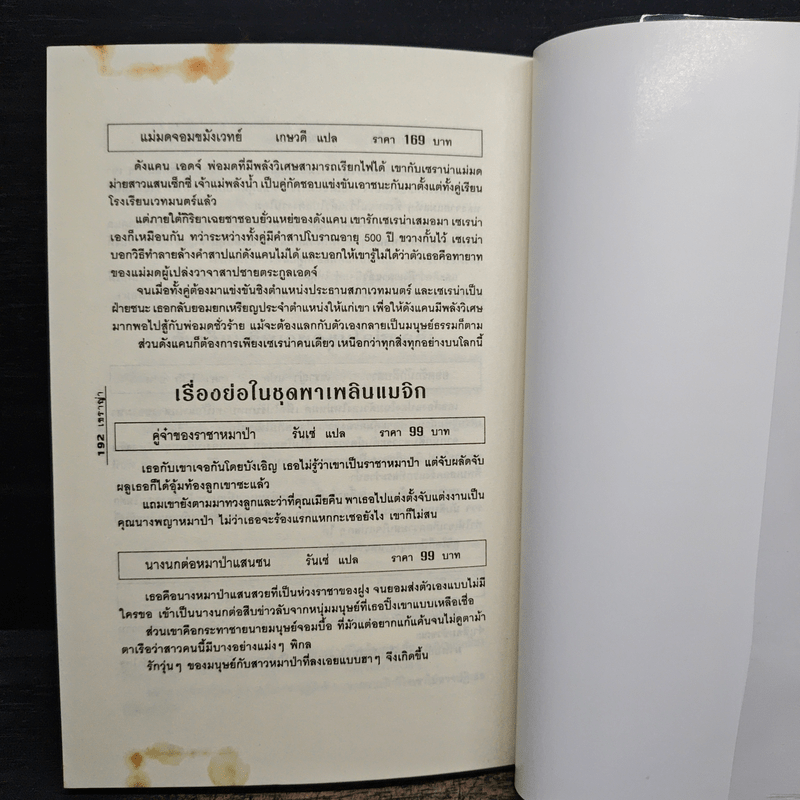 แม่มดจอมขมังเวทย์ เกษวดี แปล ราคา 169 บาท
ดังแคน เอดจ์ พ่อมดที่มีพลังวิเศษสามารถเรียกไฟได้ เขากับเซราน่าแม่มด
ม่ายสาวแสนเซ็กซี่ เจ้าแม่พลังน้ำ เป็นคู่กัดชอบแข่งขันเอาชนะกันมาตั้งแต่ทั้งคู่เรียน
โรงเรียนเวทมนตร์แล้ว
แต่ภายใต้กิริยาเฉยชาชอบยั่วแหย่ของดังแคน เขารักเซเรน่าเสมอมา เซเรน่า
เองก็เหมือนกัน ทว่าระหว่างทั้งคู่มีคำสาปโบราณอายุ 500 ปี ขวางกั้นไว้ เซเรน่า
บอกวิธีทำลายล้างคำสาปแก่ดังแคนไม่ได้ และบอกให้เขารู้ไม่ได้ว่าตัวเธอคือทายาท
ของแม่มดผู้เปล่งวาจาสาปชายตระกูลเอดจ์
จนเมื่อทั้งคู่ต้องมาแข่งขันชิงตำแหน่งประธานสภาเวทมนตร์ และเซเรน่าเป็น
ฝ่ายชนะ เธอกลับยอมยกเหรียญประจำตำแหน่งให้แก่เขา เพื่อให้ดังแคนมีพลังวิเศษ
มากพอไปสู้กับพ่อมดชั่วร้าย แม้จะต้องแลกกับตัวเองกลายเป็นมนุษย์ธรรมก็ตาม
ส่วนดังแคนก็ต้องการเพียงเซเรน่าคนเดียว เหนือกว่าทุกสิ่งทุกอย่างบนโลกนี้
เรื่องย่อในชุดพาเพลินแมจิก
192 เซราญ่า
คู่จ๋าของราชาหมาป่า รันเซ่ แปล ราคา 99 บาท
เธอกับเขาเจอกันโดยบังเอิญ เธอไม่รู้ว่าเขาเป็นราชาหมาป่า แต่จับผลัดจับ
ผลูเธอก็ได้อุ้มท้องลูกเขาซะแล้ว
แถมเขายังตามมาทวงลูกและว่าที่คุณเมียคืน พาเธอไปแต่งตั้งจับแต่งงานเป็น
คุณนางพญาหมาป่า ไม่ว่าเธอจะร้องแรกแหกกะเชอยังไง เขาก็ไม่สน
นางนกต่อหมาป่าแสนซน รันเซ่ แปล ราคา 99 บาท
เธอคือนางหมาป่าแสนสวยที่เป็นห่วงราชาของฝูง จนยอมส่งตัวเองแบบไม่มี
ใครขอ เข้าเป็นนางนกต่อสืบข่าวลับจากหนุ่มมนุษย์ที่เธอปิ๊งเขาแบบเหลือเชื่อ
ส่วนเขาคือกระทาชายนายมนุษย์จอมบื้อ ที่มัวแต่อยากแก้แค้นจนไม่ดูตาม้า
ตาเรือว่าสาวคนนี้มีบางอย่างแม่งๆ พิกล
รักวุ่นๆ ของมนุษย์กับสาวหมาป่าที่ลงเอยแบบฮาๆ จึงเกิดขึ้น